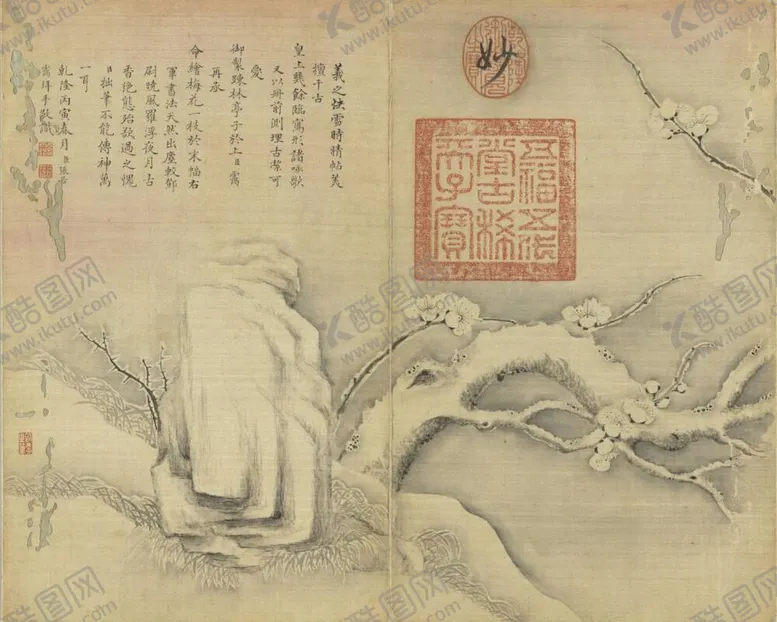 妙
五福五代
堂古稀
天子寶
羲之快雪時晴帖美
擅千古
皇上幾餘臨寫形諸咏歌
又以冊前測理古潔可
愛
御製疎林亭子於上臣靄
再承
命繪梅花一枝於末幅右
軍書法天然出塵較鄧
尉曉風羅浮夜月古
香艷態殆欲過之愧
臣拙筆不能傳神萬
一耳
乾隆丙寅春月臣張若
靄拜手敬識
酷图网
www.ikutu.com